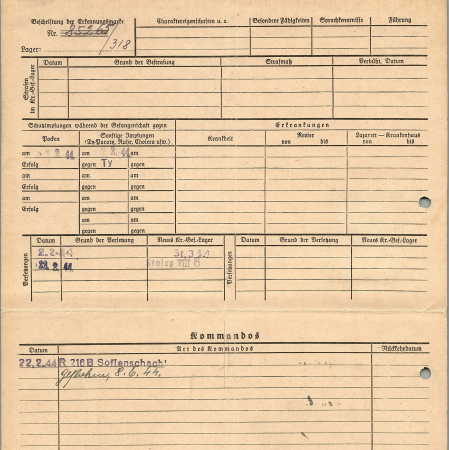 Beschriftung der Erkennungsmarke
Nr. 85265
/318
Lager:
Charaktereigenschaften u. a.
Besondere Fähigkeiten
Sprachkenntnisse
Führung
Strafen im Kr.-Gef.-Lager
Datum
Grund der Bestrafung
Strafmaß
Verbüßt, Datum
Schutzimpfungen während der Gefangenschaft gegen
Erkrankungen
Pocken
Sonstige Impfungen
(Ty-Paraty, Ruhr, Cholera usw.)
Krankheit
Revier
von bis
Lazarett — Krankenhaus
von bis
am 2. 44 am 2. 44
Erfolg gegen Ty
am am
Erfolg gegen
am am
Erfolg gegen
am
gegen
am
gegen
Versetzungen
Datum
Grund der Versetzung
Neues Kr.-Gef.-Lager
Versetzungen
Datum
Grund der Versetzung
Neues Kr.-Gef.-Lager
2.2.44 St. 344
22. 2. 44 Stalag VIII B
Kommandos
Datum
Art des Kommandos
Rückkehrdatum
22.2.44 R 216 B Soffenschacht
Geflohen, 8.6.44.